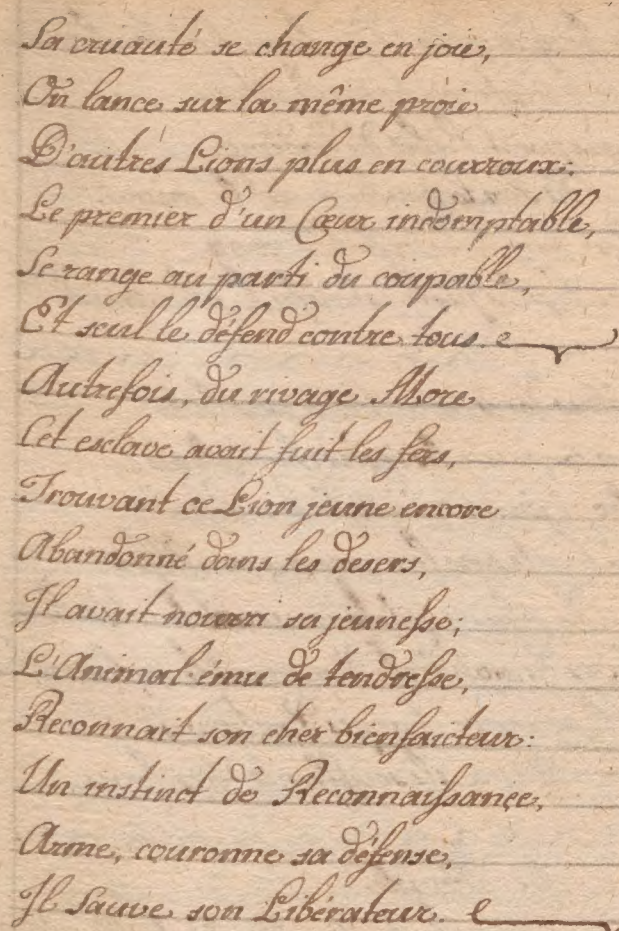 Sa cruauté se change en joie,
On lance sur la même proie
D'autres Lions plus en courroux:
Le premier d'un Cœur indomptable,
Se range au parti du coupable,
Et seul le défend contre tous.
Autrefois, du rivage More
Cet esclave avait fuit les fers,
Trouvant ce Lion jeune encore
Abandonné dans les desers,
Il avait nourri sa jeunesse;
L'Animal ému de tendresse,
Reconnait son cher bienfaicteur:
Un instinct de Reconnaissance,
Arme, couronne sa défense,
Il Sauve son Libérateur.